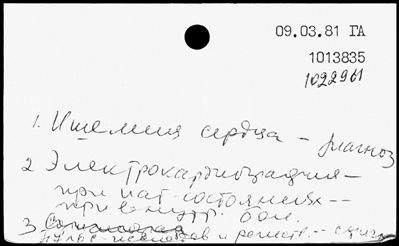 09.03.81 ГА
1013835
1022961
1. Ишемия сердца – диагноз
2 Электрокардиография –
при пат. состояниях --
при внутр. бол.
3.